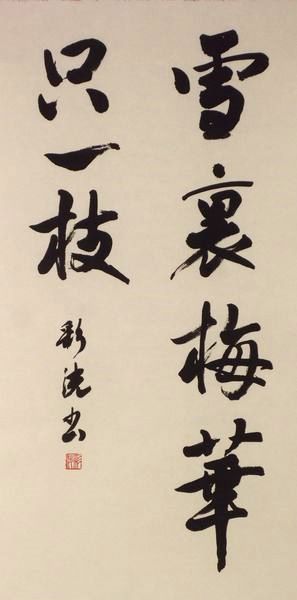 雪裏梅華
只一枝
彩洸書